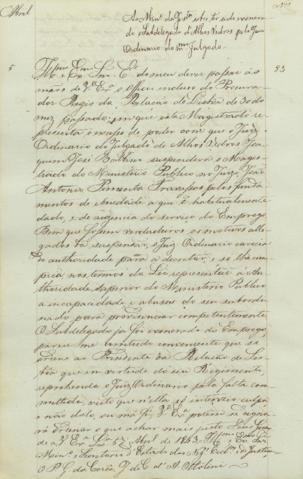 Abril
Ao Min.º da Just.ª
do Subdelegado d'Alhos Vedros pelo Juiz
Ordinario do mesmo Julgado.
5
Ill.mo e Ex.mo Snr. É do meu dever passar ás
mãos de V. Ex.ª o Officio incluso do Procura-
dor Regio da Relação de Lisboa de 30 do
mez passado, em que este Magistrado re-
presenta o excesso de poder com que o Juiz
Ordinario do Julgado de Alhos Vedros Joa-
quim José suspendera o Magis-
trado do Ministerio Publico no Juizo José
Antonio Pimenta pelos funda-
mentos de ebriedade a que é habitualmente
dado, e de negligencia do serviço do Emprego.
Bem que fossem verdadeiros os motivos alle-
gados na suspensão, o Juiz Ordinario carecia
de authoridade para a decretar, e só lhe cum-
pria nos termos da Lei representar á Au-
thoridade superior do Ministerio Publico
a incapacidade e abusos do seu subordi-
nado para providenciar competentemente.
O Subdelegado já foi exonerado do Emprego,
parece-me comtudo conveniente que se
ordene ao Presidente da Relação de Lis-
boa que em virtude do seu Regimento,
reprehenda o Juiz Ordinario pela falta com-
mettida, visto que n'ella só interveio culpa
e não dolo, ou não. V. Ex.ª porém se servirá
Ordenar o que achar mais justo. Deos Guar-
de a V. Ex.ª Lx.ª 5 de Abril de 1843. Ill.mo e Ex.mo Snr.
Min.º e Secretario d'Estado dos Neg.os Eccl.os e de Justiça
O P. G. da Corôa, J. de C. d'A. Ottolini